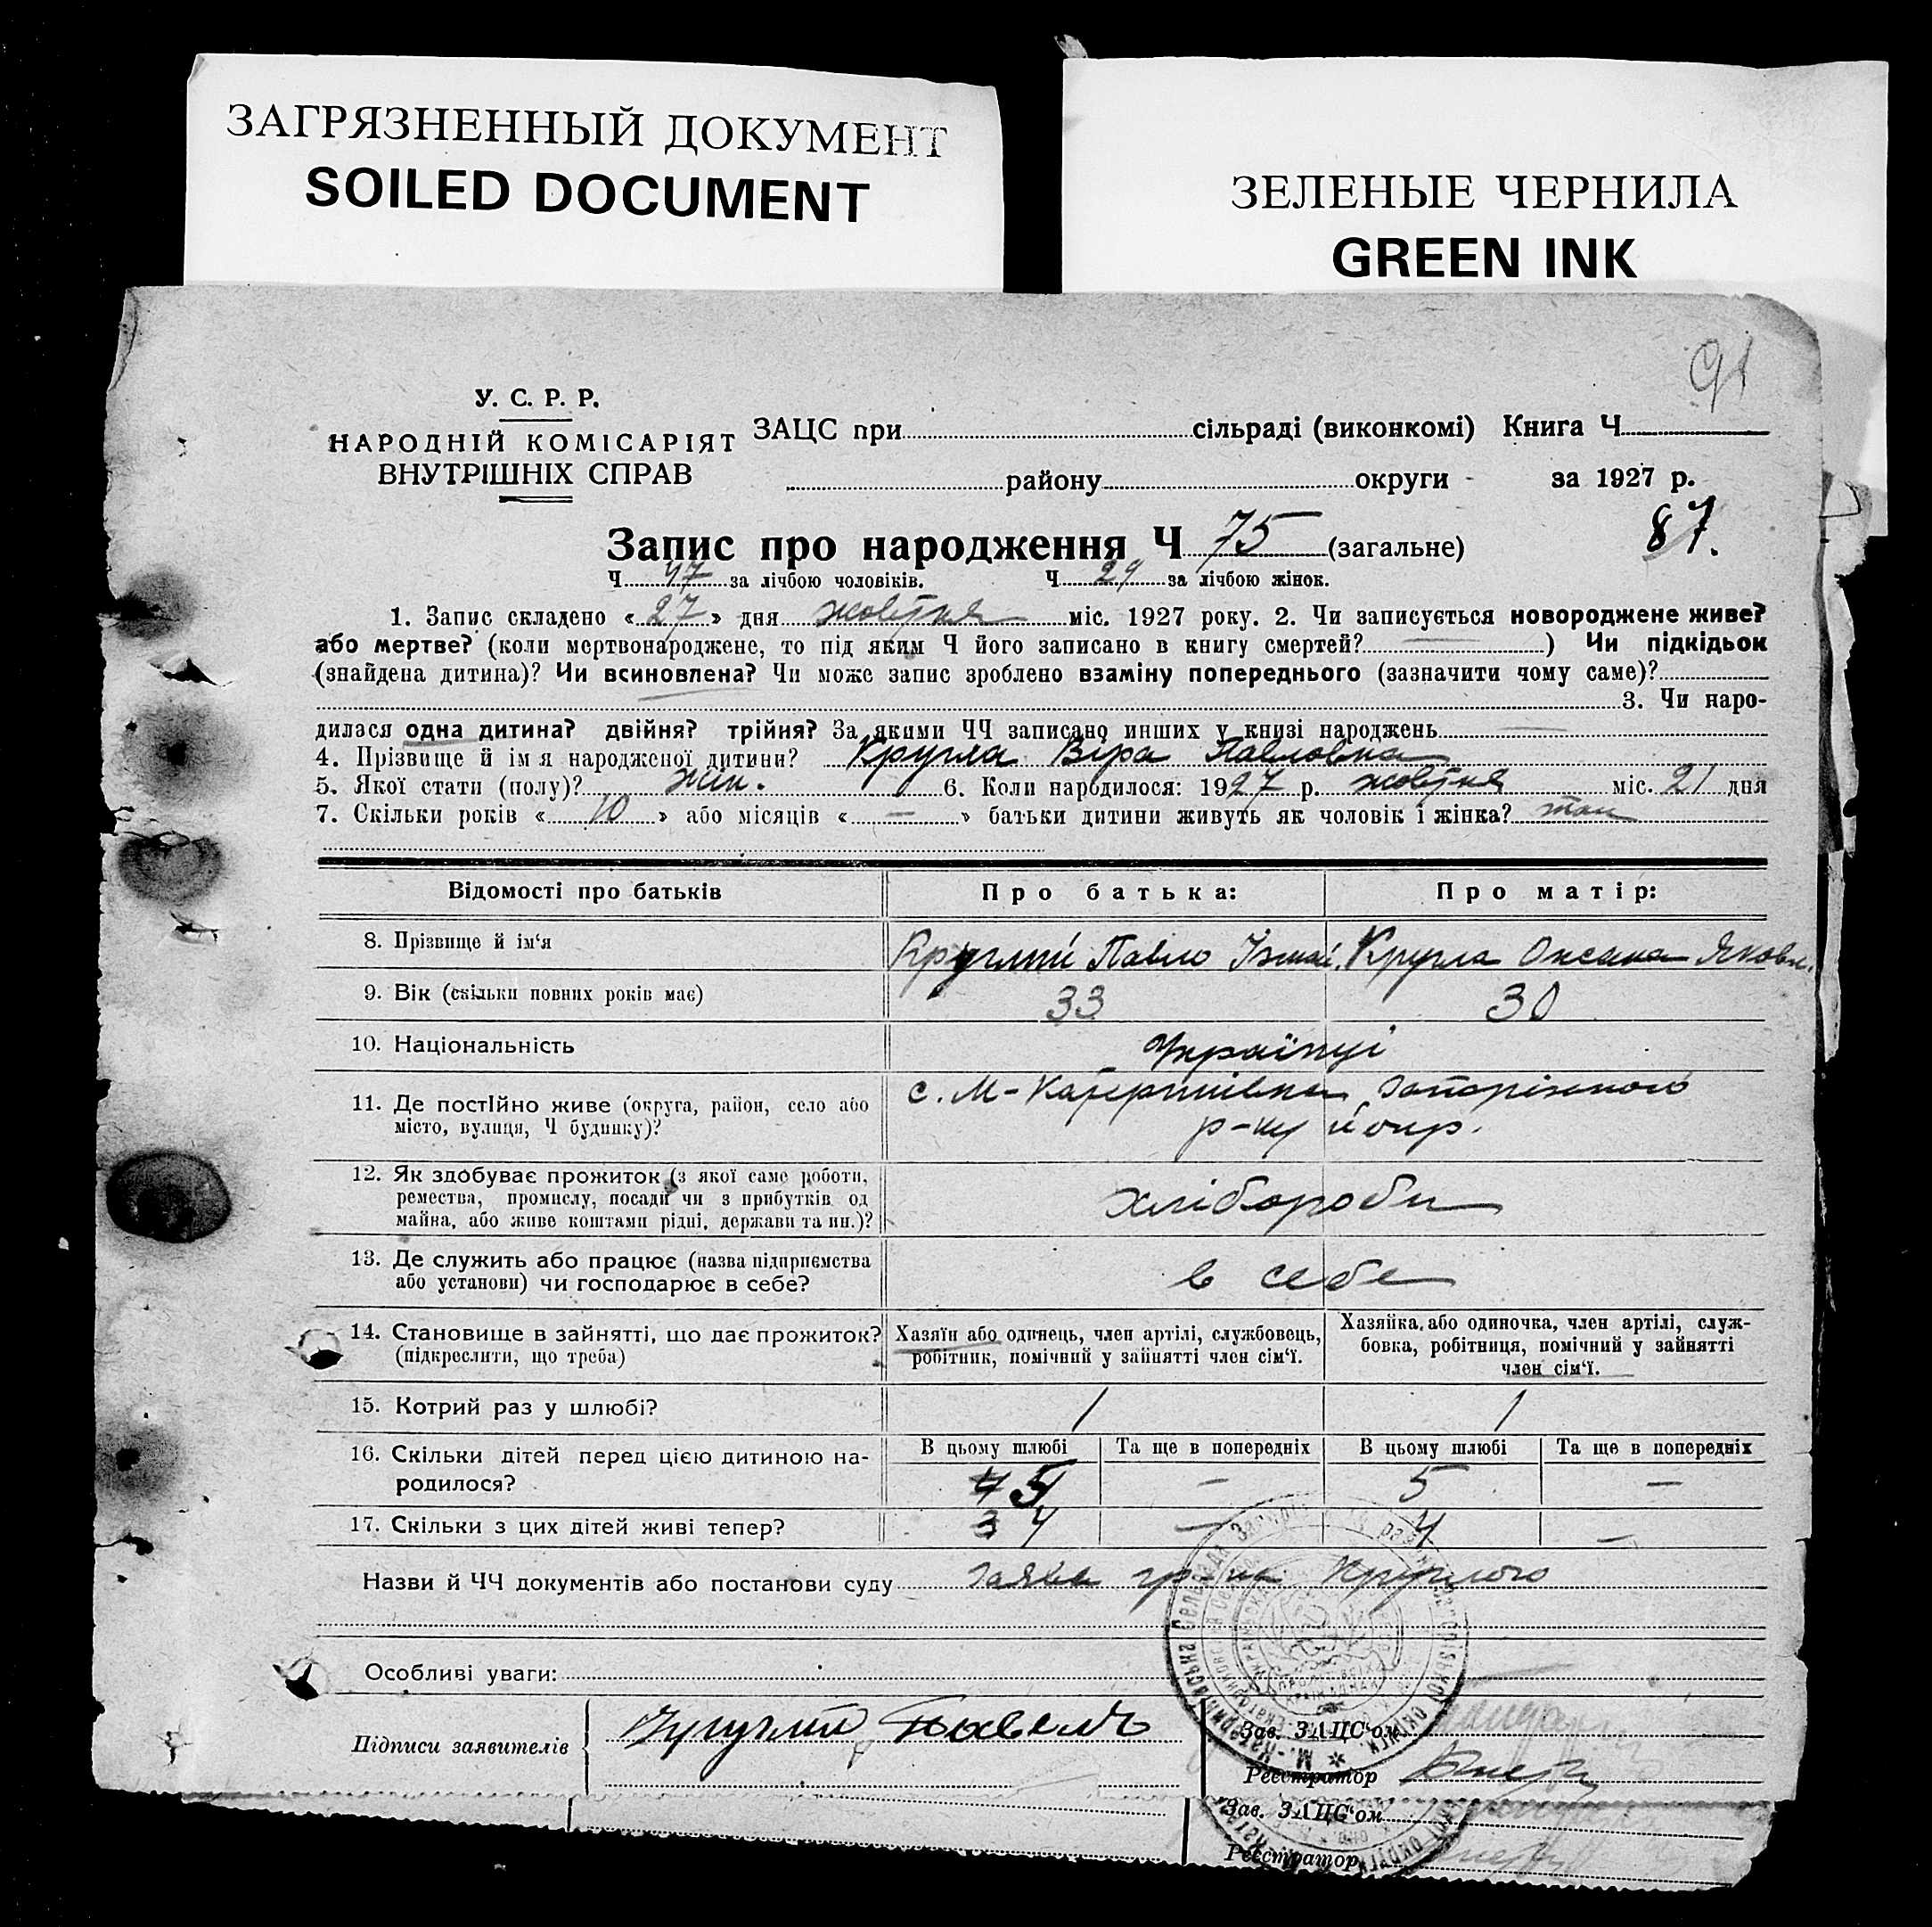 ЗАГРЯЗНЕННЫЙ ДОКУМЕНТ
SOILED DOCUMENT
ЗЕЛЕНЫЕ ЧЕРНИЛА
GREEN INK
91
У. С. Р. Р.
НАРОДНІЙ КОМІСАРІЯТ
ВНУТРІШНІХ СПРАВ
ЗАЦС при сільраді (виконкомі) Книга Ч
району округи за 1927 р.
87.
Запис про народження Ч 75 (загальне)
Ч 47 за лічбою чоловіків. Ч 29 за лічбою жінок.
1. Запис складено «27» дня жовтня міс. 1927 року. 2. Чи записується новороджене живе?
або мертве? (коли мертвонароджене, то під яким Ч його записано в книгу смертей? —) Чи підкідьок
(знайдена дитина)? Чи всиновлена? Чи може запис зроблено взаміну попереднього (зазначити чому саме)?
3. Чи наро-
дилася одна дитина? двійня? трійня? За якими ЧЧ записано инших у книзі народжень —
4. Прізвище й імя народженої дитини? Кругла Віра Павловна
5. Якої стати (полу)? жін. 6. Коли народилося: 1927 р. жовтня міс. 21 дня
7. Скільки років «10» або місяців «—» батьки дитини живуть як чоловік і жінка? так
Відомості про батьків Про батька: Про матір:
8. Прізвище й ім'я Круглий Павло Кругла Оксана Яковл.
9. Вік (скільки повних років має) 33 30
10. Національність Українці
11. Де постійно живе (округа, район, село або
місто, вулиця, Ч будинку)?
с. М-Катеринівка Запоріжного
р-ну й окр.
12. Як здобуває прожиток (з якої саме роботи,
ремества, промислу, посади чи з прибутків од
майна, або живе коштами рідні, держави та ин.)?
хлібороби
13. Де служить або працює (назва підприємства
або установи) чи господарює в себе?
в себе
14. Становище в зайнятті, що дає прожиток?
(підкреслити, що треба)
Хазяїн або одинець, член артілі, службовець,
робітник, помічний у зайнятті член сім'ї.
Хазяйка, або одиночка, член артілі, служ-
бовка, робітниця, помічний у зайнятті
член сім'ї.
15. Котрий раз у шлюбі? 1 1
16. Скільки дітей перед цією дитиною на-
родилося?
В цьому шлюбі Та ще в попередніх В цьому шлюбі Та ще в попередніх
4 5 — 5 —
17. Скільки з цих дітей живі тепер? 3 4 — 4 —
Назви й ЧЧ документів або постанови суду заява гр-на Круглого
Особливі уваги:
Підписи заявителів Круглий Павель
Зав. ЗАЦС'ом
Реєстратор
Зав. ЗАЦС'ом
Реєстратор